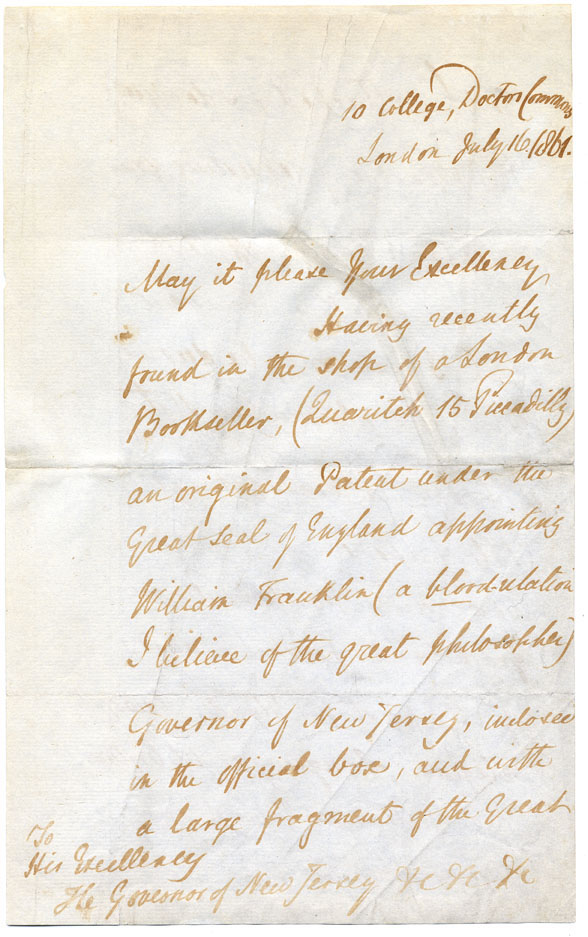 10 College, Doctors Commons
London July 16. 1861.
May it please Your Excellency
Having recently
found in the shop of a London
Bookseller, (Quaritch 15 Piccadilly)
an original Patent under the
Great Seal of England appointing
William Franklin (a blood-relation
I believe of the great philosopher)
Governor of New Jersey, inclosed
in the official box, and with
a large fragment of the Great
To
His Excellency
The Governor of New Jersey &c &c &c